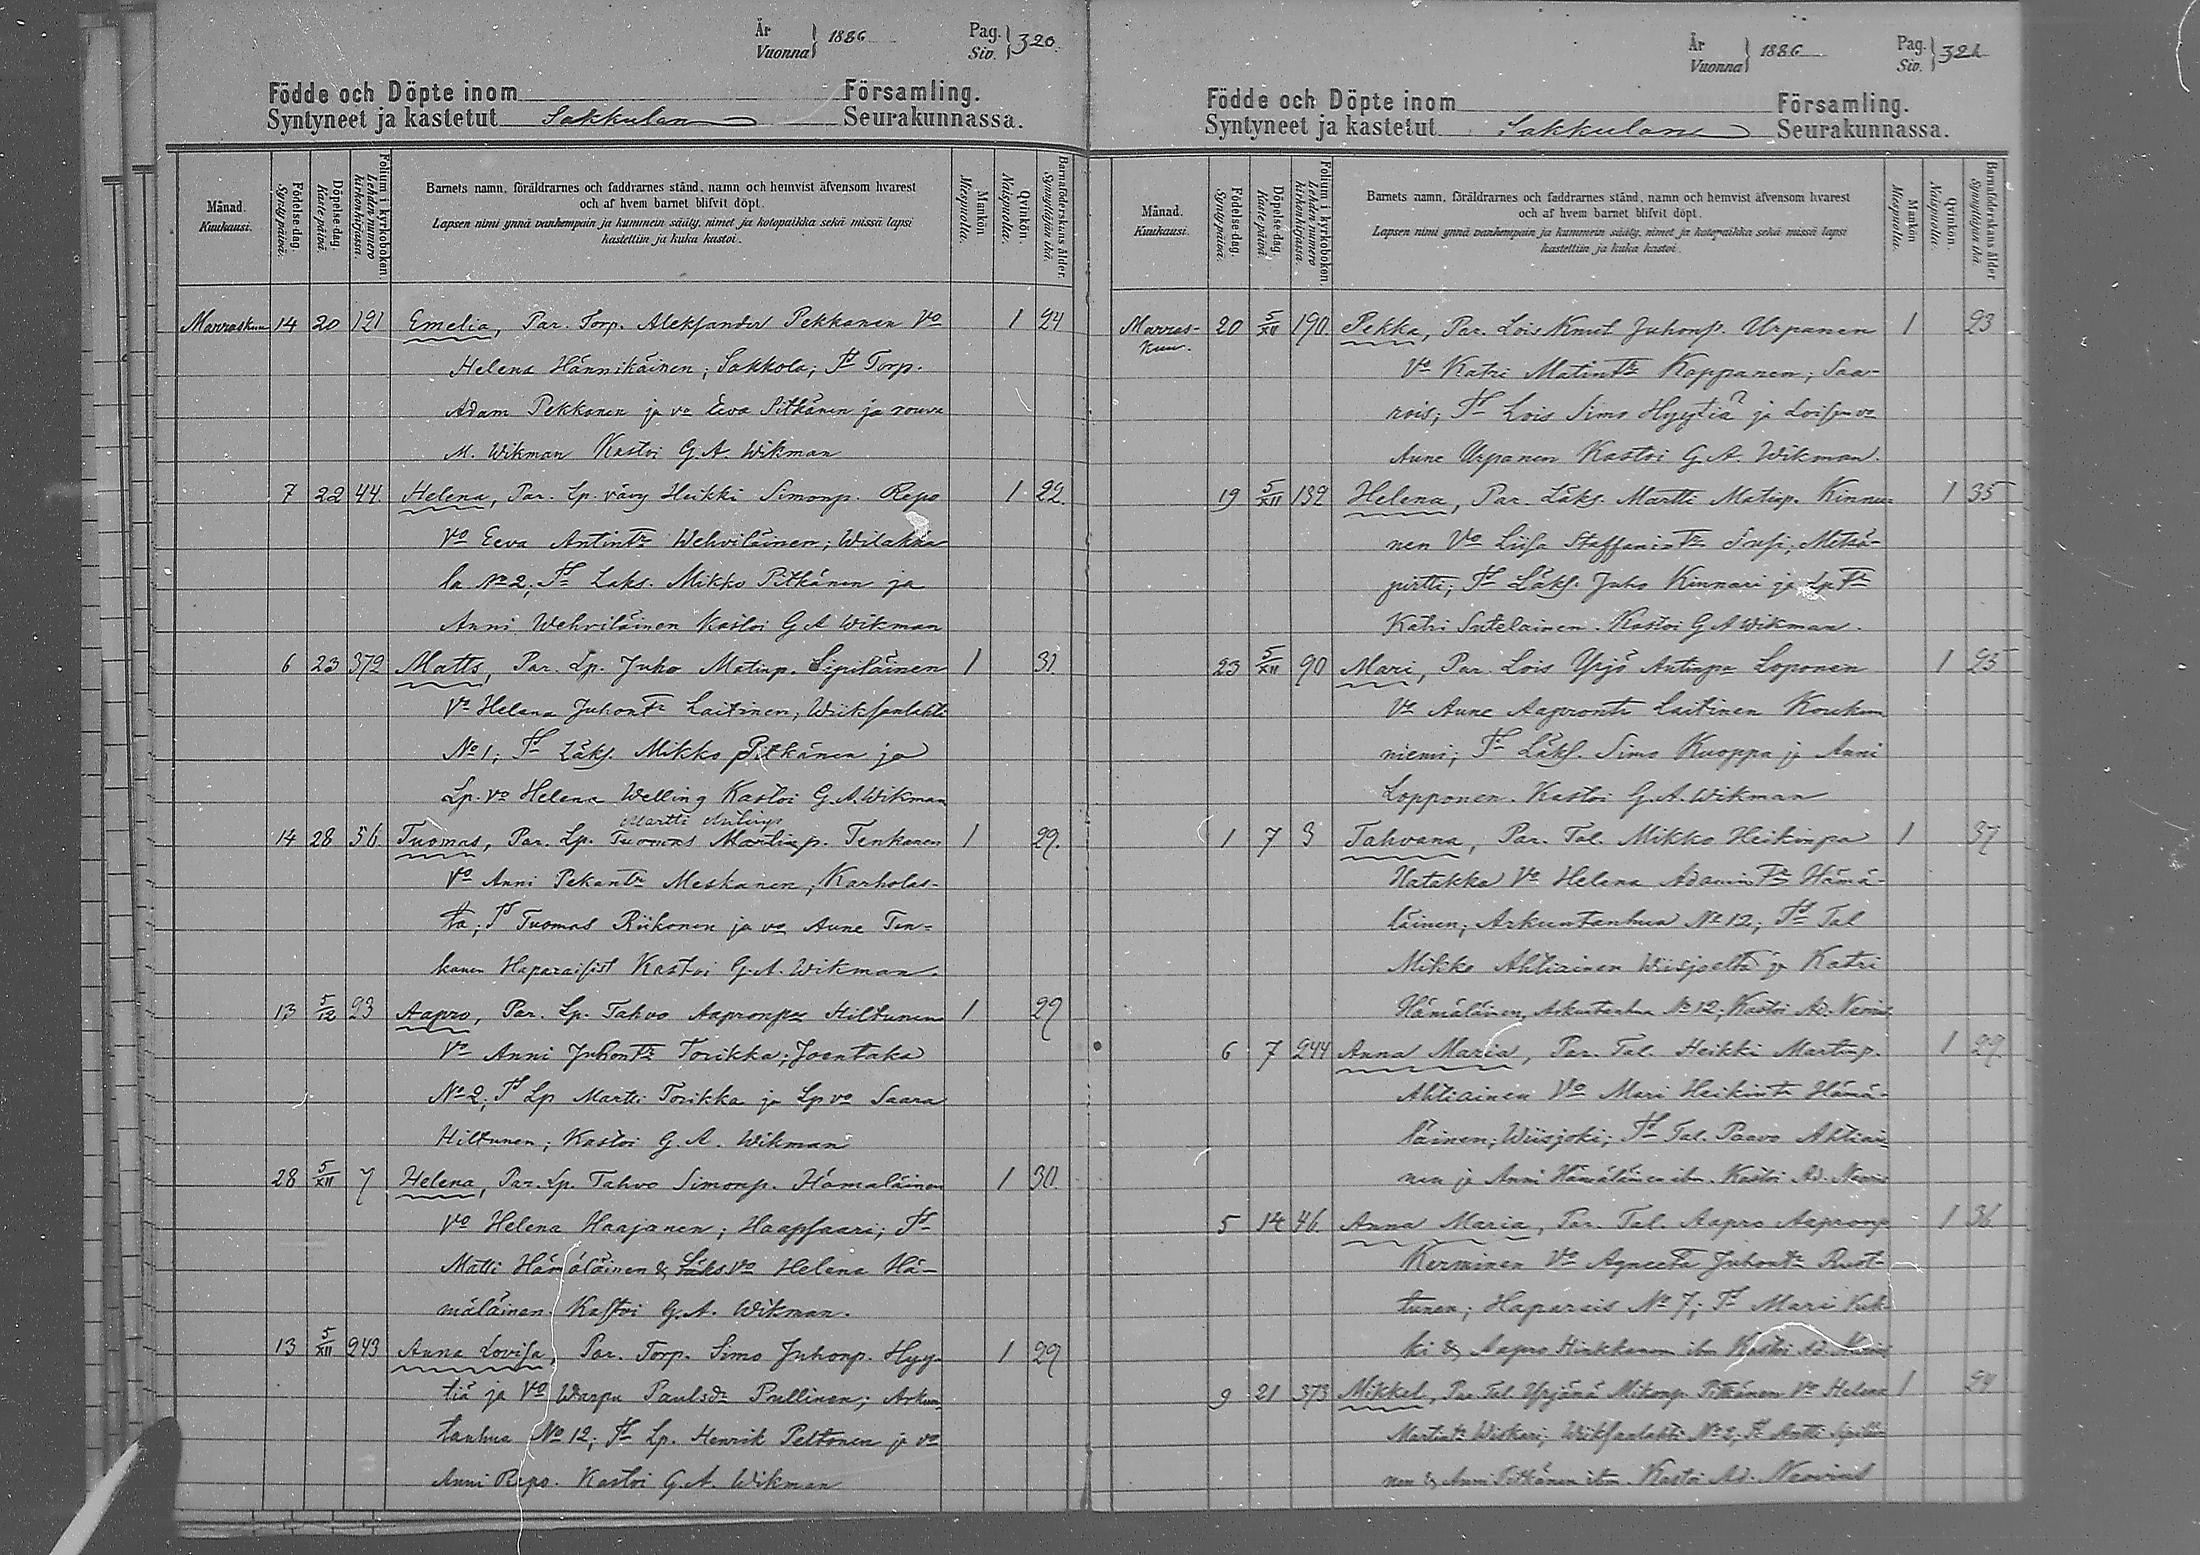 År
Vuonna } 1886
Pag.
Siv. } 320.
Födde och Döpte inom Församling.
Syntyneet ja kastetut Sakkulan Seurakunnassa.
Månad.
Kuukausi.
Födelse-dag.
Syntypäivä.
Döpelse-dag
Kastepäivä.
Folium i kyrkoboken.
Lehden numero
kirkonkirjassa.
Barnets namn, föräldrarnes och faddrarnes stånd, namn och hemvist äfvensom hvarest
och af hvem barnet blifvit döpt.
Lapsen nimi ynnä vanhempain ja kummein sääty, nimet ja kotopaikka sekä missä lapsi
kastettiin ja kuka kastoi.
Mankön.
Miespuolia.
Qvinkön.
Naispuolia.
Barnaföderskans ålder.
Synnyttäjän ikä.
Marraskuu 14 20 121 Emelia, Par. Torp. Aleksander Pekkanen Vo 1 24
Helena Hännikäinen; Sakkola; Td Torp.
Adam Pekkanen ja vo Eeva Pitkänen ja rouva
M. Wikman Kastoi G. A. Wikman
7 22 44. Helena, Par. Lp. vävy Heikki Simonp. Repo 1 22.
Vo Eeva Antintr Wehviläinen; Wilakka
la No 2; Td Läks. Mikko Pitkänen ja
Anni Wehviläinen Kastoi G A Wikman
6 23 372 Matts, Par. Lp. Juho Matinp. Sipiläinen 1 31.
Vo Helena Juhontr Laitinen; Wiiksanlahti
No 1; Td Läks. Mikko Pitkänen ja
Lp. vo Helena Welling Kastoi G. A. Wikman
Martti Antinp
14 28 56. Tuomas, Par. Lp. Tuomas Martinp. Tenkanen 1 29.
Vo Anni Pekantr Meskanen; Karholas-
ta; Td Tuomas Riikonen ja vo Aune Ten-
kanen Haparaisist Kastoi G. A. Wikman.
13 5/12 93 Aapro, Par. Lp. Tahvo Aapronpa Hiltunen 1 29
Vo Anni Juhontr Torikka; Joentaka
No 2; Td Lp Martti Torikka ja Lp vo Saara
Hiltunen; Kastoi G. A. Wikman
28 5/XII 7 Helena, Par. Lp. Tahvo Simonp. Hämäläinen 1 30.
Vo Helena Haajanen; Haapsaari; Td
Matti Hämäläinen & Läks vo Helena Hä-
mäläinen. Kastoi G. A. Wikman.
13 5/XII 243 Anna Lovisa, Par. Torp. Simo Juhonp. Hyy- 1 29
tiä ja Vo Warpu Paulsdr Pullinen; Arkun-
tanhua No 12; Td Lp. Henrik Peltonen ja vo
Anni Repo. Kastoi G. A. Wikman
År
Vuonna } 1886
Pag.
Siv. } 321
Födde och Döpte inom Församling.
Syntyneet ja kastetut Sakkulan Seurakunnassa.
Månad.
Kuukausi.
Födelse-dag.
Syntypäivä.
Döpelse-dag
Kastepäivä.
Folium i kyrkoboken.
Lehden numero
kirkonkirjassa.
Barnets namn, föräldrarnes och faddrarnes stånd, namn och hemvist äfvensom hvarest
och af hvem barnet blifvit döpt.
Lapsen nimi ynnä vanhempain ja kummein sääty, nimet ja kotopaikka sekä missä lapsi
kastettiin ja kuka kastoi.
Mankön
Miespuolia.
Qvinkön.
Naispuolia.
Barnaföderskans ålder
Synnyttäjän ikä.
Marras- 20 5/XII 190. Pekka, Par. Lois Juhonp. Urpanen 1 23
kuu.
Vo Katri Matintr Kappanen; Saa-
rois; Td Lois Simo Hyytiä ja Loisen vo
Aune Urpanen Kastoi G. A. Wikman.
19 5/XII 132 Helena, Par. Läks. Martti Matinp. Kinnu- 1 35
nen Vo Liisa Staffanintr Susi; Metsä-
pirtti; Td Läks. Juho Kinnari ja Lp Tr
Katri Sutelainen. Kastoi G A Wikman.
23 5/XII 90 Mari, Par. Lois Yrjö Antinpa Loponen 1 25
Vo Aune Aaprontr Laitinen Koukun
niemi; Td Läks. Simo Kuoppa ja Anni
Lopponen. Kastoi G. A. Wikman
1 7 3 Tahvana, Par. Tal. Mikko Heikinpa 1 37
Hatakka Vo Helena Adamin Tr Hämä-
läinen; Arkuntanhua No 12; Td Tal
Mikko Ahtiainen Wiisjoelta ja Katri
Hämäläinen, Arkuntanhua No 12; Kastoi Ad. Neovius
6 7 244 Anna Maria, Par. Tal. Heikki Martinp. 1 29
Ahtiainen Vo Mari Heikintr Hämä-
läinen; Wiisjoki; Td Tal. Paavo Ahtiai-
nen ja Anni Hämäläinen ibm. Kastoi Ad. Neovius
5 14 46. Anna Maria, Par. Tal. Aapro Aapronp 1 36
Kerminen Vo Agneeta Juhontr Rust-
tunen; Haparais No 7; Td Mari Kuk-
ki & Aapro Hinkkanen ibm Kastoi Ad.
9 21 373 Mikkel, Par. Tal. Yrjänä Mikonp. Pitkänen Vo Helena 1 24
Martintr Wiskari; Wiiksanlahti No 2; Td Antti Sipiläi-
nen & Anni Pitkänen ibm. Kastoi Ad. Neovius